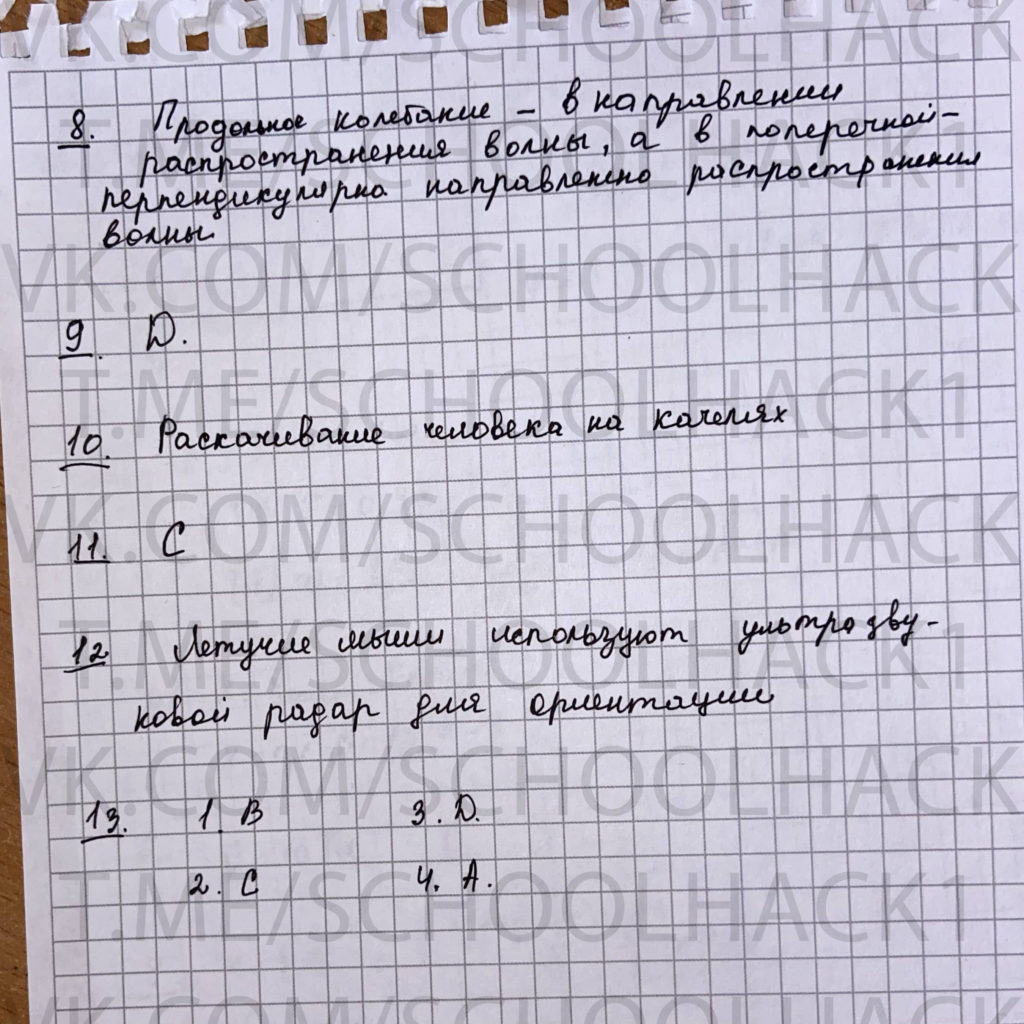 VK.COM/SCHOOLHACK
8. Продольное колебание – в направлении
распространения волны, а в поперечной–
перпендикулярна направленно распространения
волны
VK.COM/SCHOOLHACK
9. D.
T.ME/SCHOOLHACK1
10. Раскачивание человека на качелях
VK.COM/SCHOOLHACK
11. C
12 Летучие мыши используют ультразву-
T.ME/SCHOOLHACK1
ковой радар для ориентации
VK.COM/SCHOOLHACK
13. 1. B 3. D.
2. C 4. A.
T.ME/SCHOOLHACK1